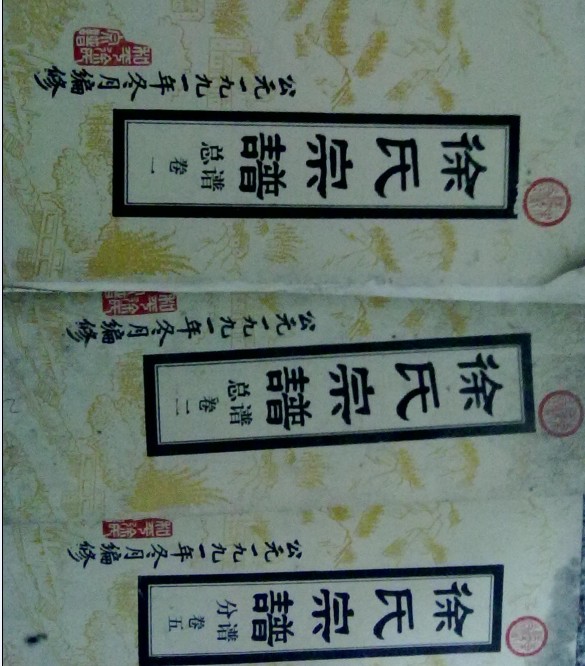 徐氏宗譜
总谱 卷一
公元一九九一年冬月編修
徐氏宗譜
总谱 卷二
公元一九九一年冬月編修
徐氏宗譜
分谱 卷五
公元一九九一年冬月編修